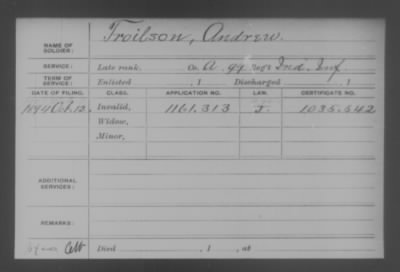 NAME OF SOLDIER: Troilson, Andrew.
SERVICE: Late rank, Co. A. 99 Reg't Ind. Inf.
TERM OF SERVICE: Enlisted , 1 Discharged , 1
DATE OF FILING. CLASS. APPLICATION NO. LAW. CERTIFICATE NO.
1894 Oct. 12. Invalid, 1161.313 J. 1035.542
Widow,
Minor,
ADDITIONAL SERVICES:
REMARKS:
Died , 1 , at